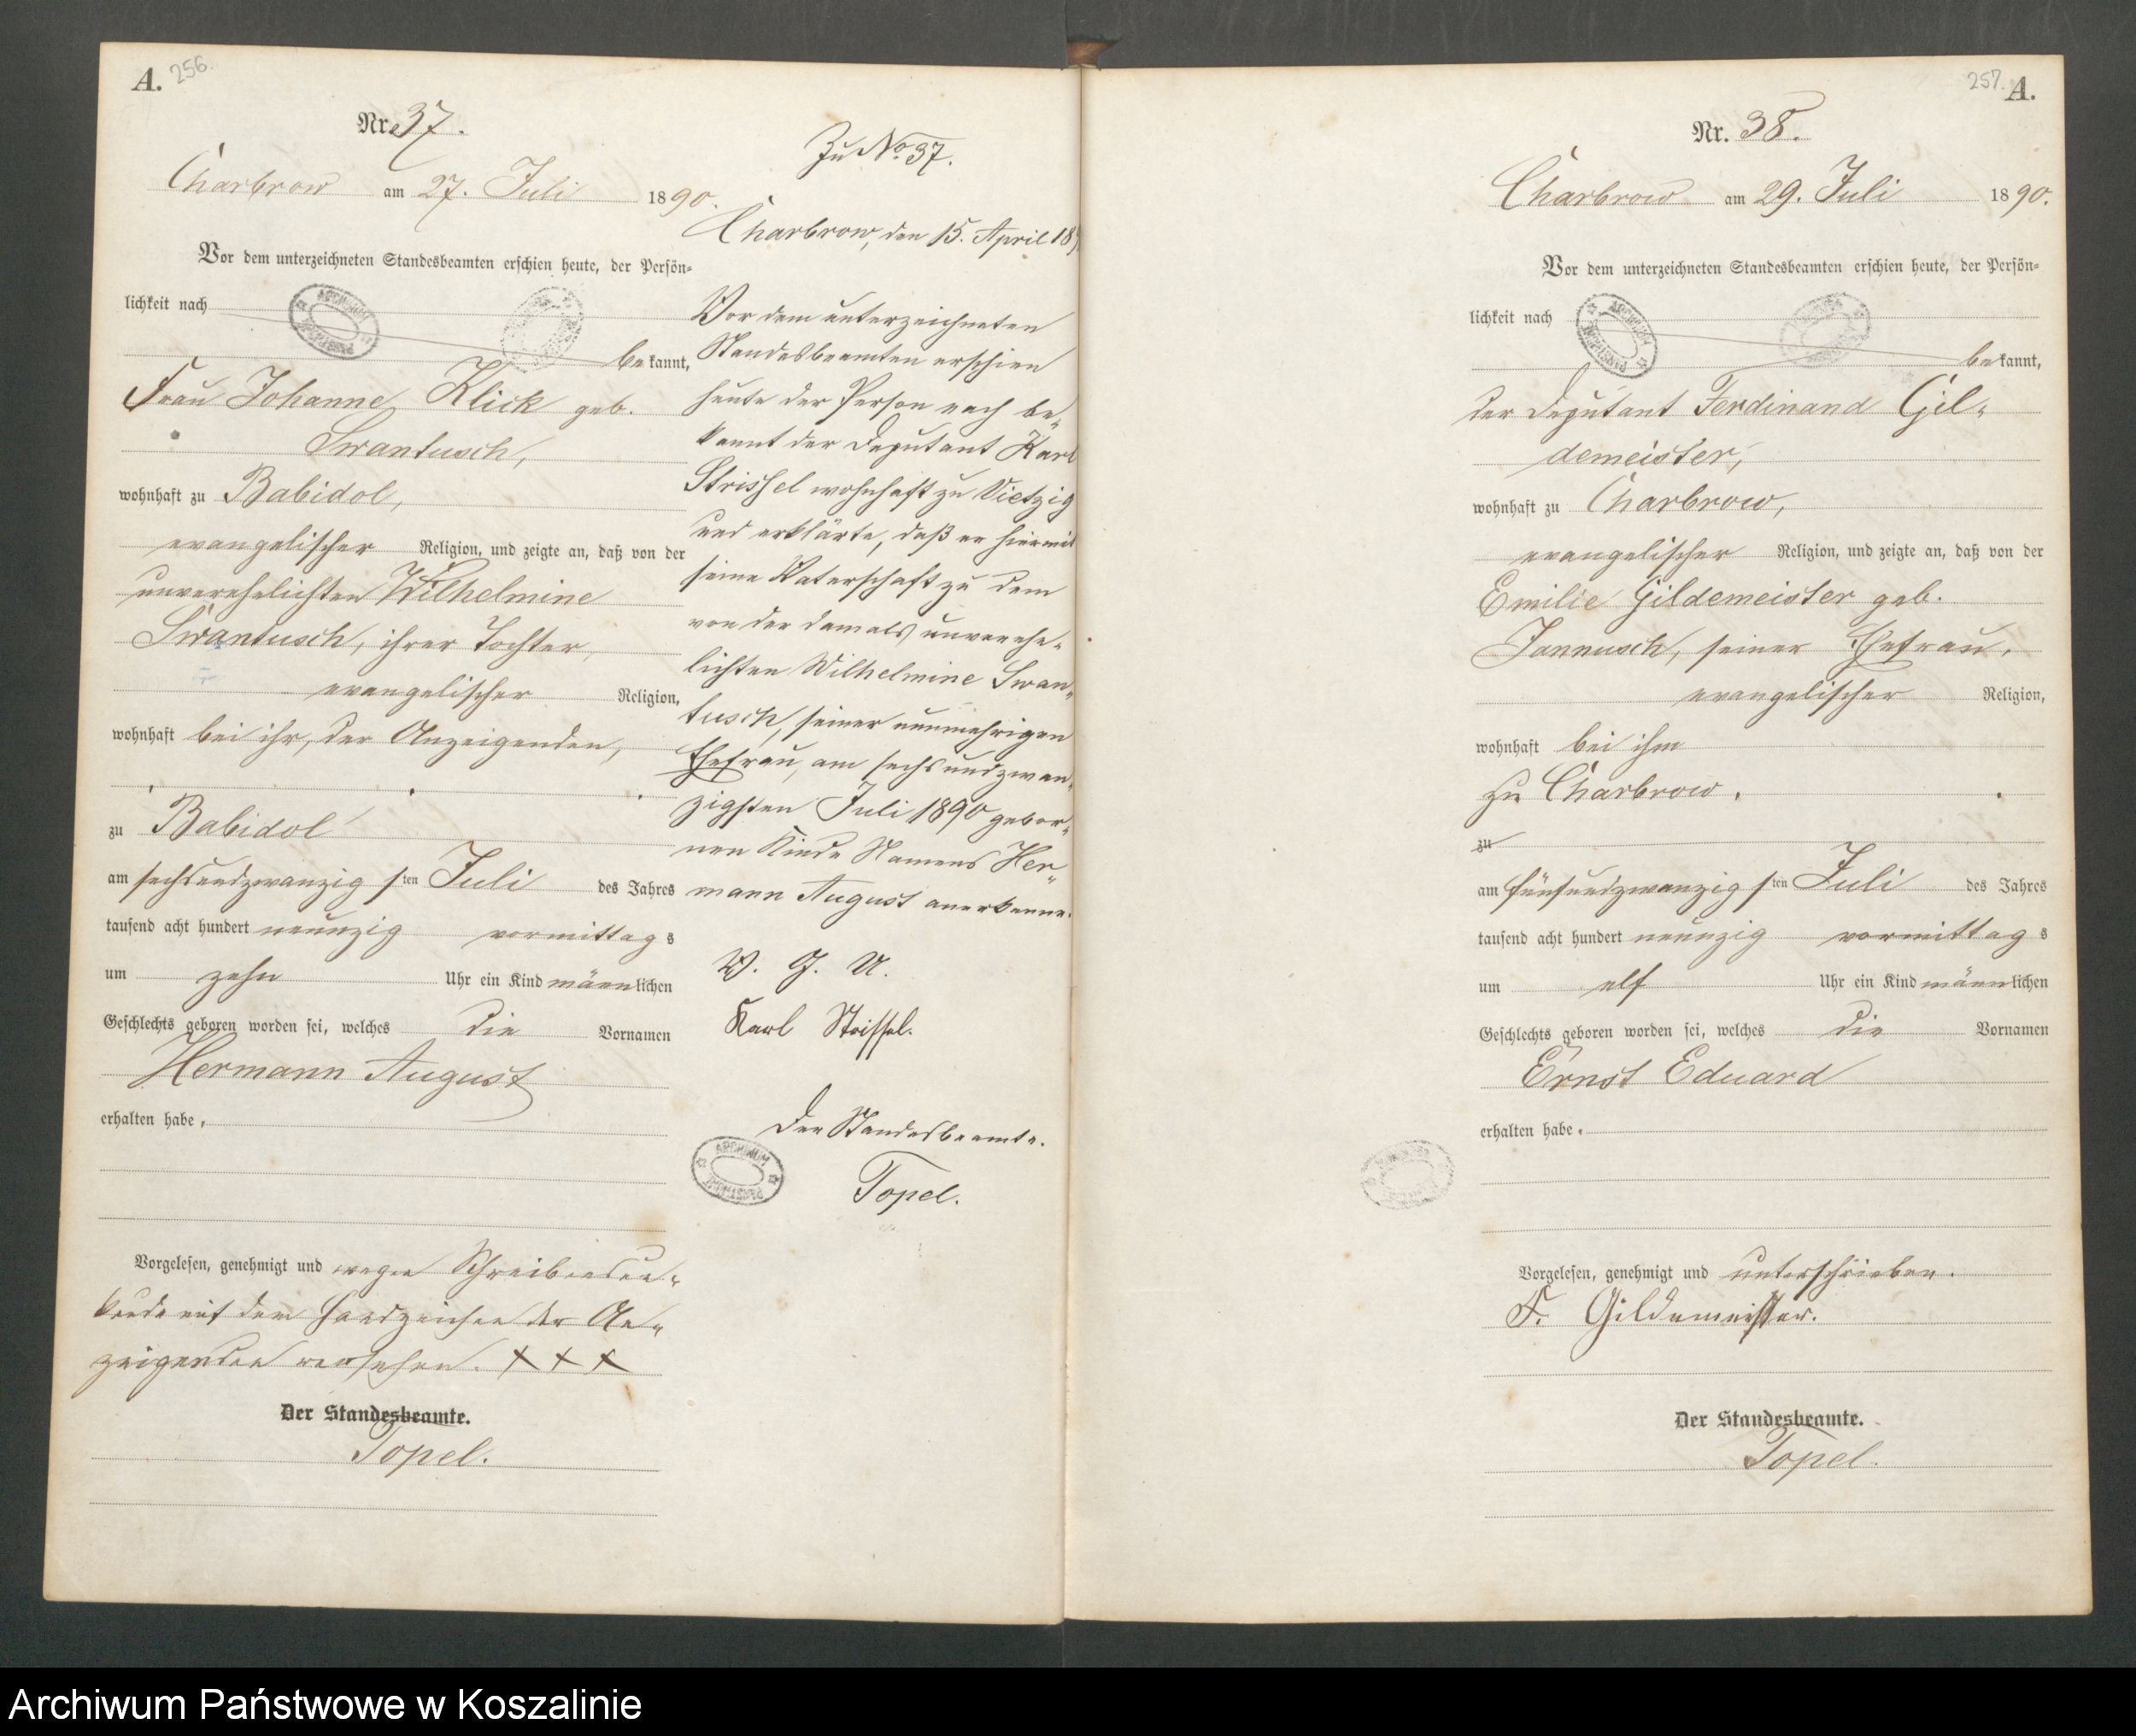 A. 256.
Nr. 37.
Charbrow am 27. Juli 1890.
Vor dem unterzeichneten Standesbeamten erschien heute, der Persön=
lichkeit nach
bekannt,
Frau Johanne Klick geb.
Swantusch,
wohnhaft zu Babidol,
evangelischer Religion, und zeigte an, daß von der
unverehelichten Wilhelmine
Swantusch, ihrer Tochter,
evangelischer Religion,
wohnhaft bei ihr, der Anzeigenden,
zu Babidol
am sechsundzwanzigsten Juli des Jahres
tausend acht hundert neunzig vormittags
um zehn Uhr ein Kind männlichen
Geschlechts geboren worden sei, welches die Vornamen
Hermann August
erhalten habe.
Vorgelesen, genehmigt und wegen Schreibensun=
kunde mit dem Handzeichen der An=
zeigenden versehen. XXX
Der Standesbeamte.
Topel.
Zu No 37.
Charbrow, den 15. April 18
Vor dem unterzeichneten
Standesbeamten erschien
heute der Person nach be=
kannt der Deputant Karl
Strissel wohnhaft zu Vietzig
und erklärte, daß er hiermit
seine Vaterschaft zu dem
von der damals unverehe=
lichten Wilhelmine Swan=
tusch, seiner nunmehrigen
Ehefrau, am sechsundzwan=
zigsten Juli 1890 gebor=
nen Kinde Namens Her=
mann August anerkenne.
V. G. U.
Karl Strissel.
Der Standesbeamte.
Topel.
257. A.
Nr. 38.
Charbrow am 29. Juli 1890.
Vor dem unterzeichneten Standesbeamten erschien heute, der Persön=
lichkeit nach
bekannt,
der Deputant Ferdinand Gil=
demeister,
wohnhaft zu Charbrow,
evangelischer Religion, und zeigte an, daß von der
Emilie Gildemeister geb.
Jannusch, seiner Ehefrau,
evangelischer Religion,
wohnhaft bei ihm
zu Charbrow.
zu
am fünfundzwanzigsten Juli des Jahres
tausend acht hundert neunzig vormittags
um elf Uhr ein Kind männlichen
Geschlechts geboren worden sei, welches die Vornamen
Ernst Eduard
erhalten habe.
Vorgelesen, genehmigt und unterschrieben.
F. Gildemeister.
Der Standesbeamte.
Topel.
Archiwum Państwowe w Koszalinie